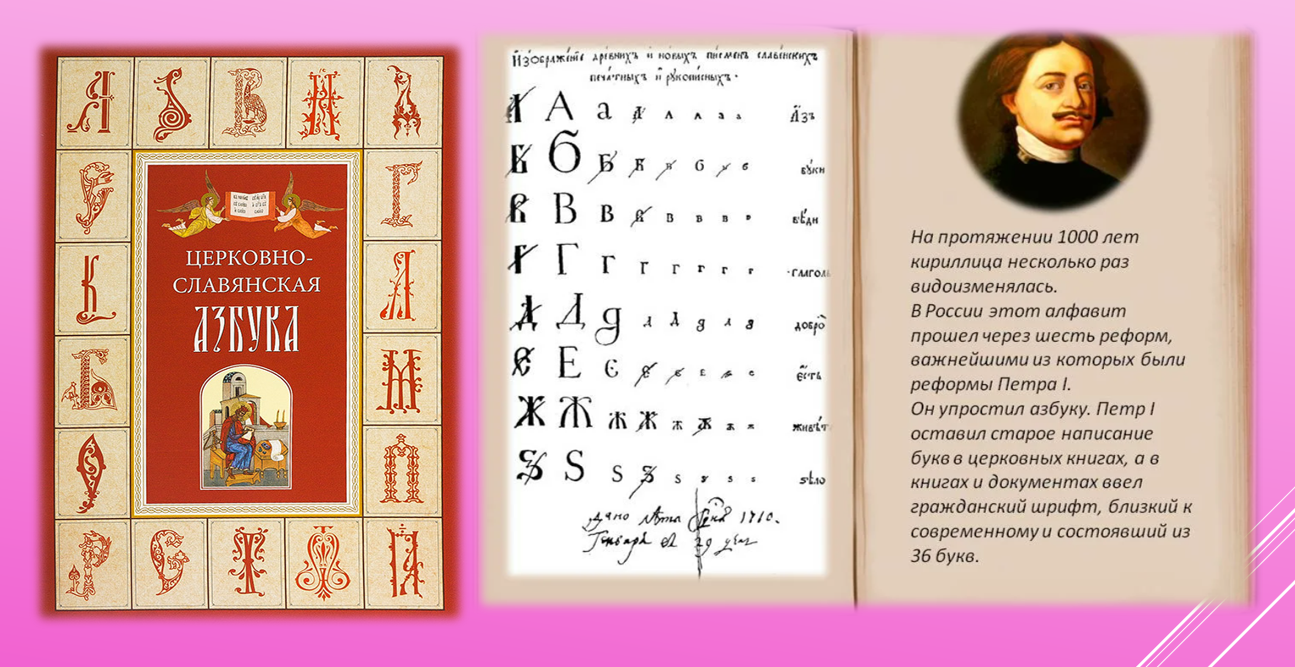 ЦЕРКОВНО-
СЛАВЯНСКАЯ
АЗБУКА
Изображенїе древнихъ и новыхъ писменъ славенскихъ
печатныхъ и рукописныхъ.
А а Азъ
Б буки
В в вѣди
Г г глаголь
Д д добро
Е є єсть
Ж ж живѣт
Ѕ ѕ ѕѣло
На протяжении 1000 лет
кириллица несколько раз
видоизменялась.
В России этот алфавит
прошел через шесть реформ,
важнейшими из которых были
реформы Петра I.
Он упростил азбуку. Петр I
оставил старое написание
букв в церковных книгах, а в
книгах и документах ввел
гражданский шрифт, близкий к
современному и состоявший из
36 букв.